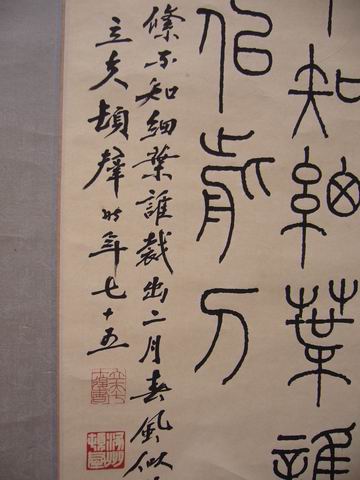 知細葉誰
似剪刀
絛不知細葉誰裁出二月春風似
立夫頓羣時年七十五